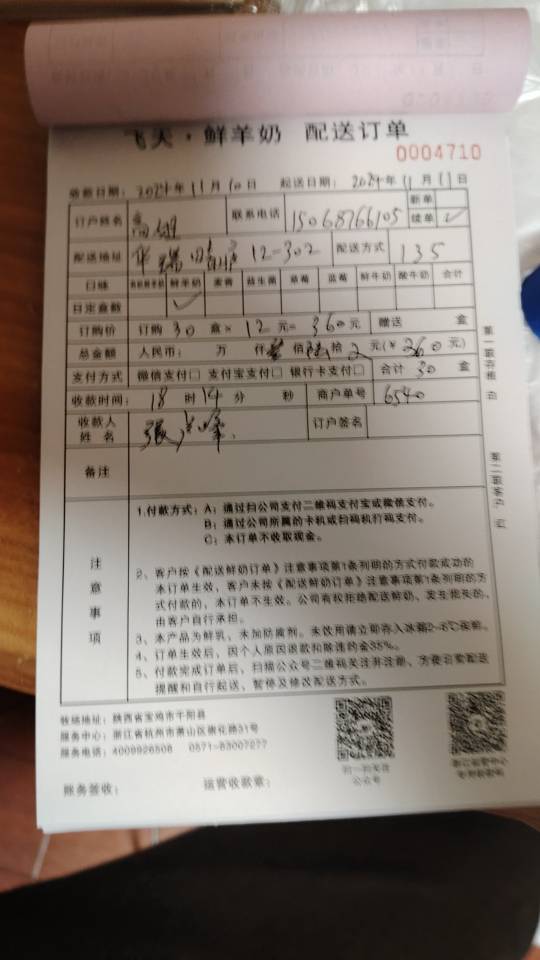 飞天·鲜羊奶 配送订单
0004710
收款日期: 2024年11月10日 起送日期: 2024年11月11日
订户姓名 高 联系电话 15068766105 新单 续单 ✓
配送地址 华瑞晴庐 12-302 配送方式 135
口味 鲜羊奶 麦香 益生菌 草莓 蓝莓 鲜牛奶 酸牛奶 合计
日定盒数 ✓
订购价 订购 30 盒× 12 元= 360元 赠送 盒
总金额 人民币: 万 仟 叁 佰 陆 拾 元(¥ 360 元)
支付方式 微信支付□ 支付宝支付□ 银行卡支付□ 合计 30 盒
收款时间: 18 时 14 分 秒 商户单号 6540
收款人姓名 张 峰 订户签名
备注
注意事项
1.付款方式: A: 通过扫公司支付二维码支付宝或微信支付。
B: 通过公司所属的卡机或扫码机打码支付。
C: 本订单不收取现金。
2、客户按《配送鲜奶订单》注意事项第1条列明的方式付款成功的
本订单生效, 客户未按《配送鲜奶订单》注意事项第1条列明的方
式付款的, 本订单不生效。公司有权拒绝配送鲜奶、发生损失的,
由客户自行承担。
3、本产品为鲜乳, 未加防腐剂。未饮用请立即存入冰箱2-6℃保鲜。
4、订单生效后, 因个人原因退款扣除违约金35%。
5、付款完成订单后, 扫描公众号二维码关注并注册, 方便日常配送
提醒和自行起送、暂停及修改配送方式。
第一联存根 白
第二联客户 红
牧场地址: 陕西省宝鸡市千阳县
服务中心: 浙江省杭州市萧山区崇化路31号
服务电话: 4009926508 0571-83007277
扫一扫关注
公众号
浙江运营中心
账务签收: 运营收款章: